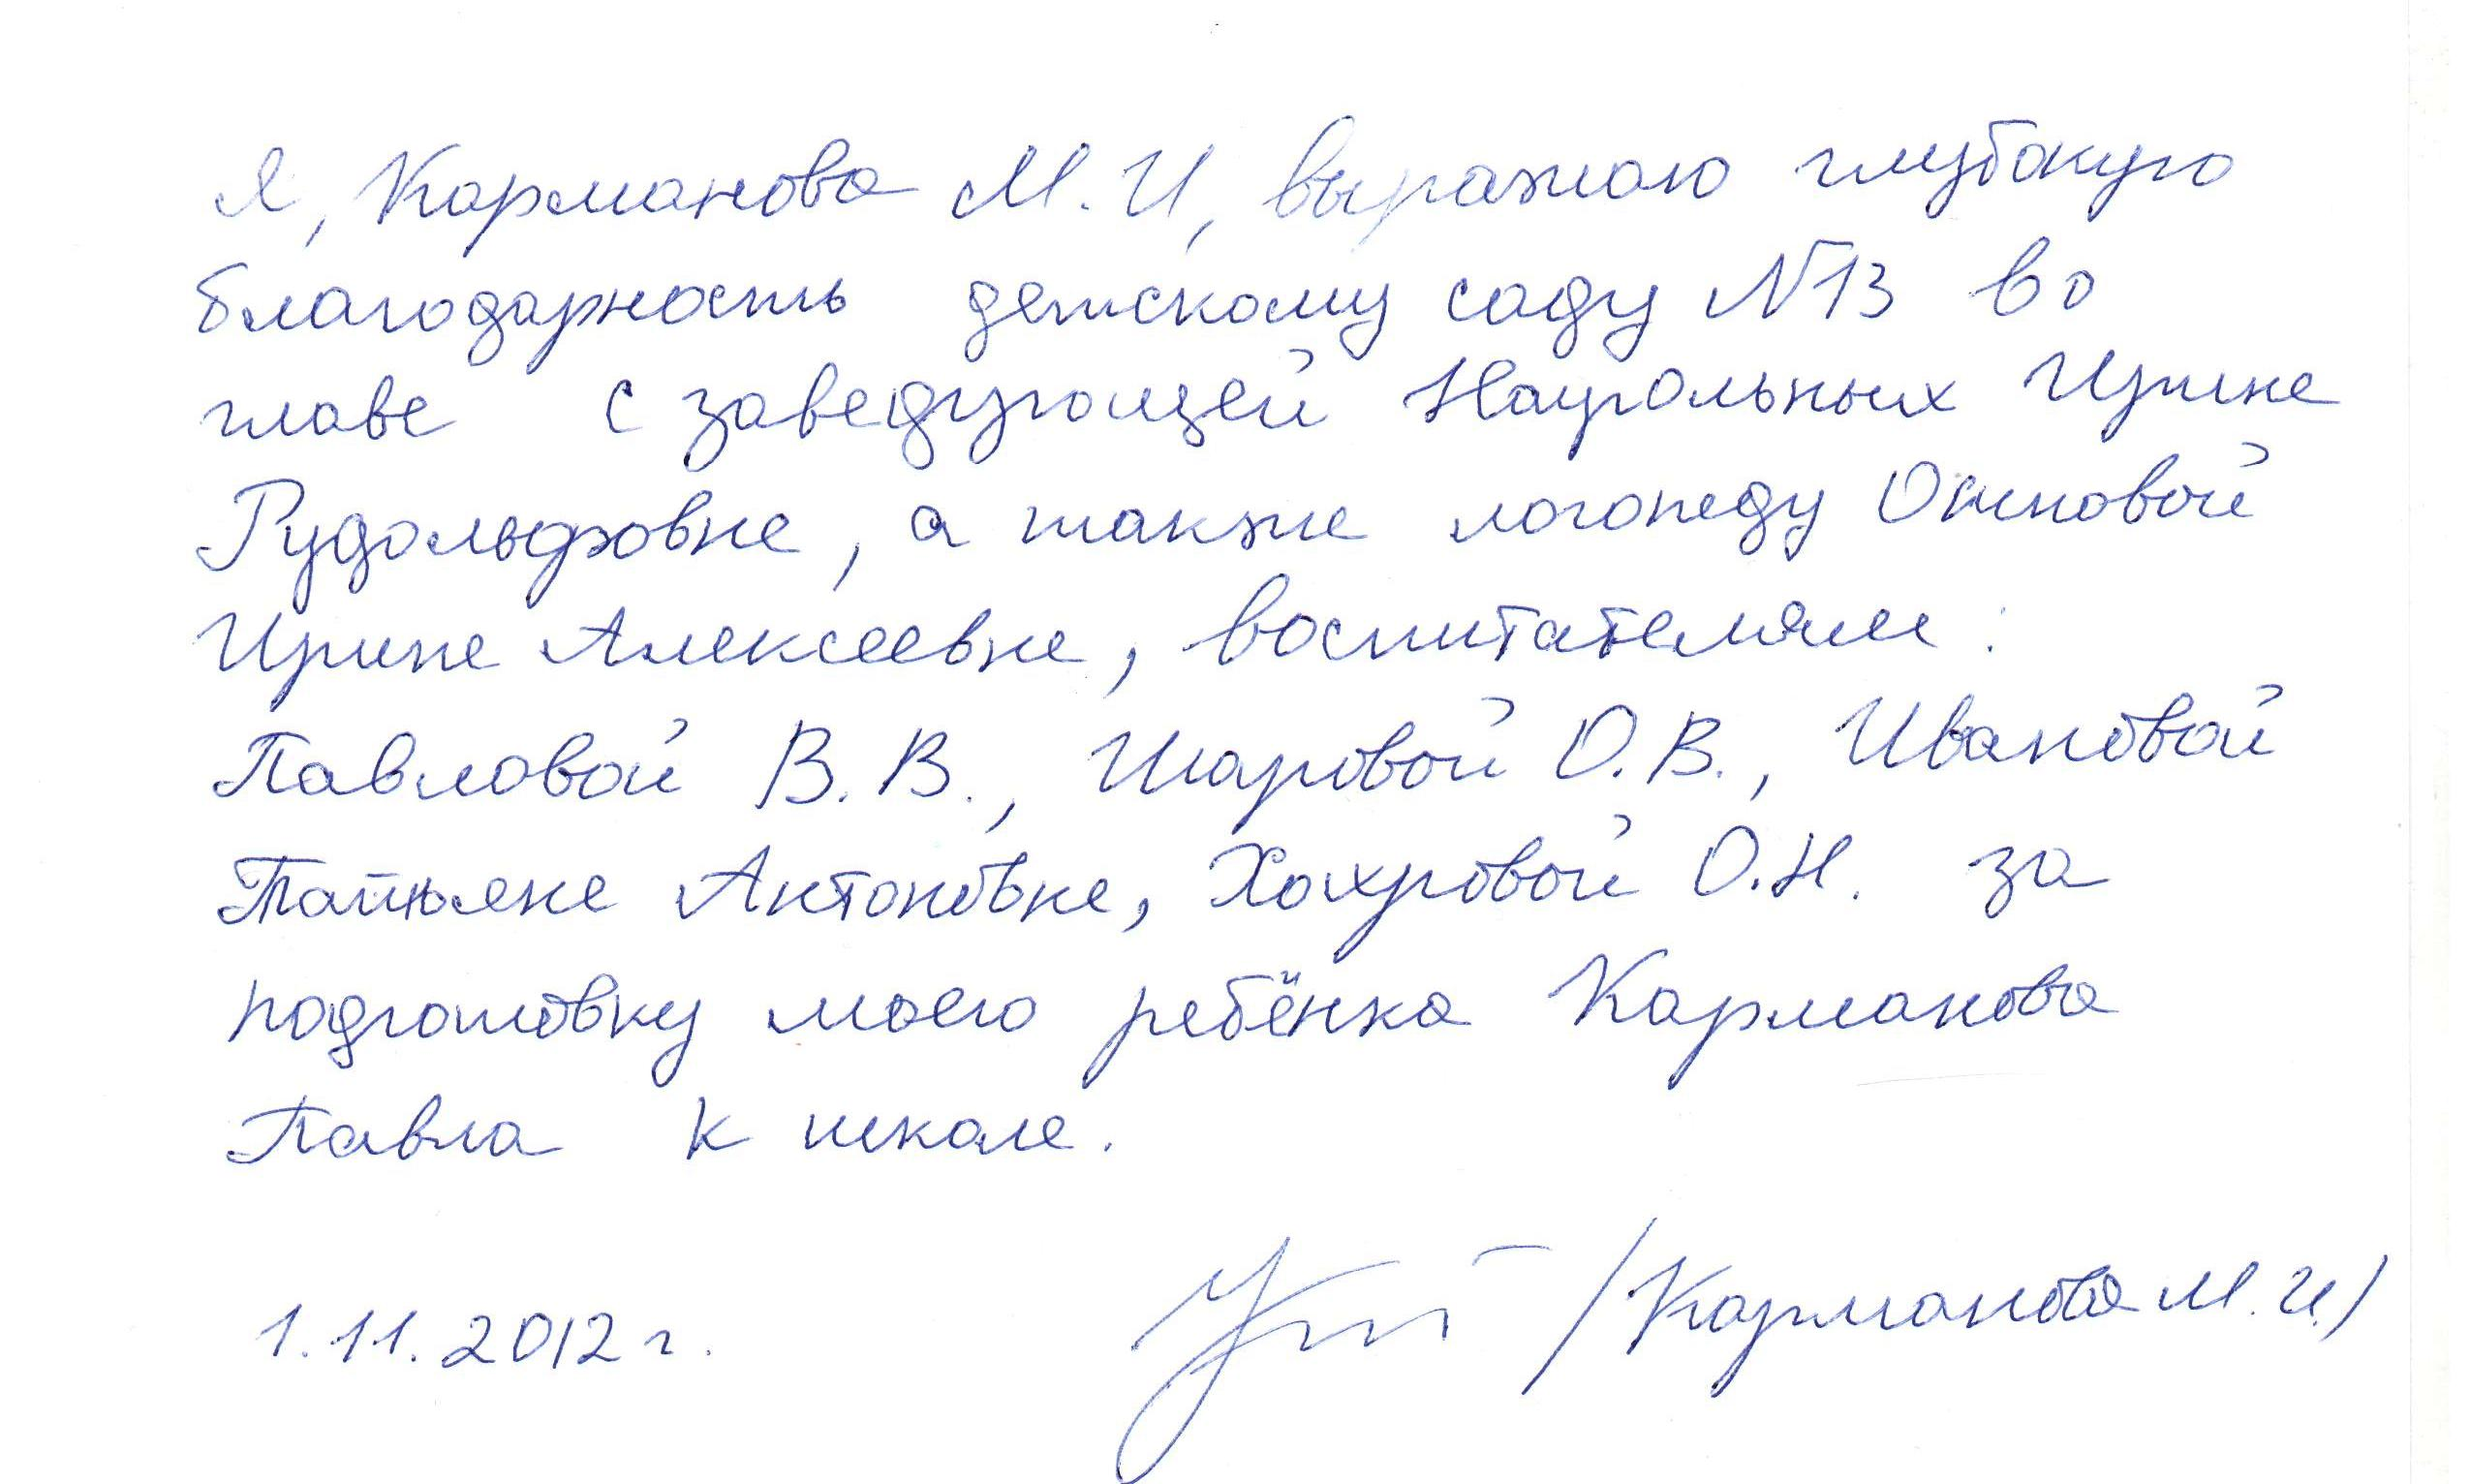 Я, Карманова М.И, выражаю глубокую
благодарность детскому саду №13 во
главе с заведующей Наугольных Ирине
Рудольфовне, а также логопеду
Ирине Алексеевне, воспитателям:
Павловой В.В., Шаровой О.В., Ивановой
Татьяне Антоновне, Хохровой О.Н. за
подготовку моего ребёнка Карманова
Павла к школе.
1.11.2012 г. /Карманова М.И/